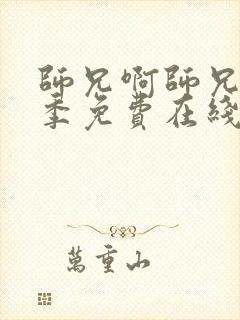 師兄啊師兄
季免費在綫
萬重山